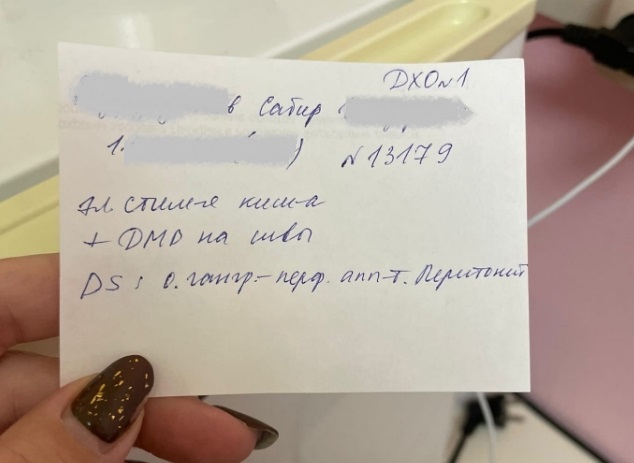 ДХО N1
в Сабир
1. ) N13179
эл. стим-я киш-а
+ ДМВ на швы
DS: о. гангр.-перф. апп-т. Перитонит